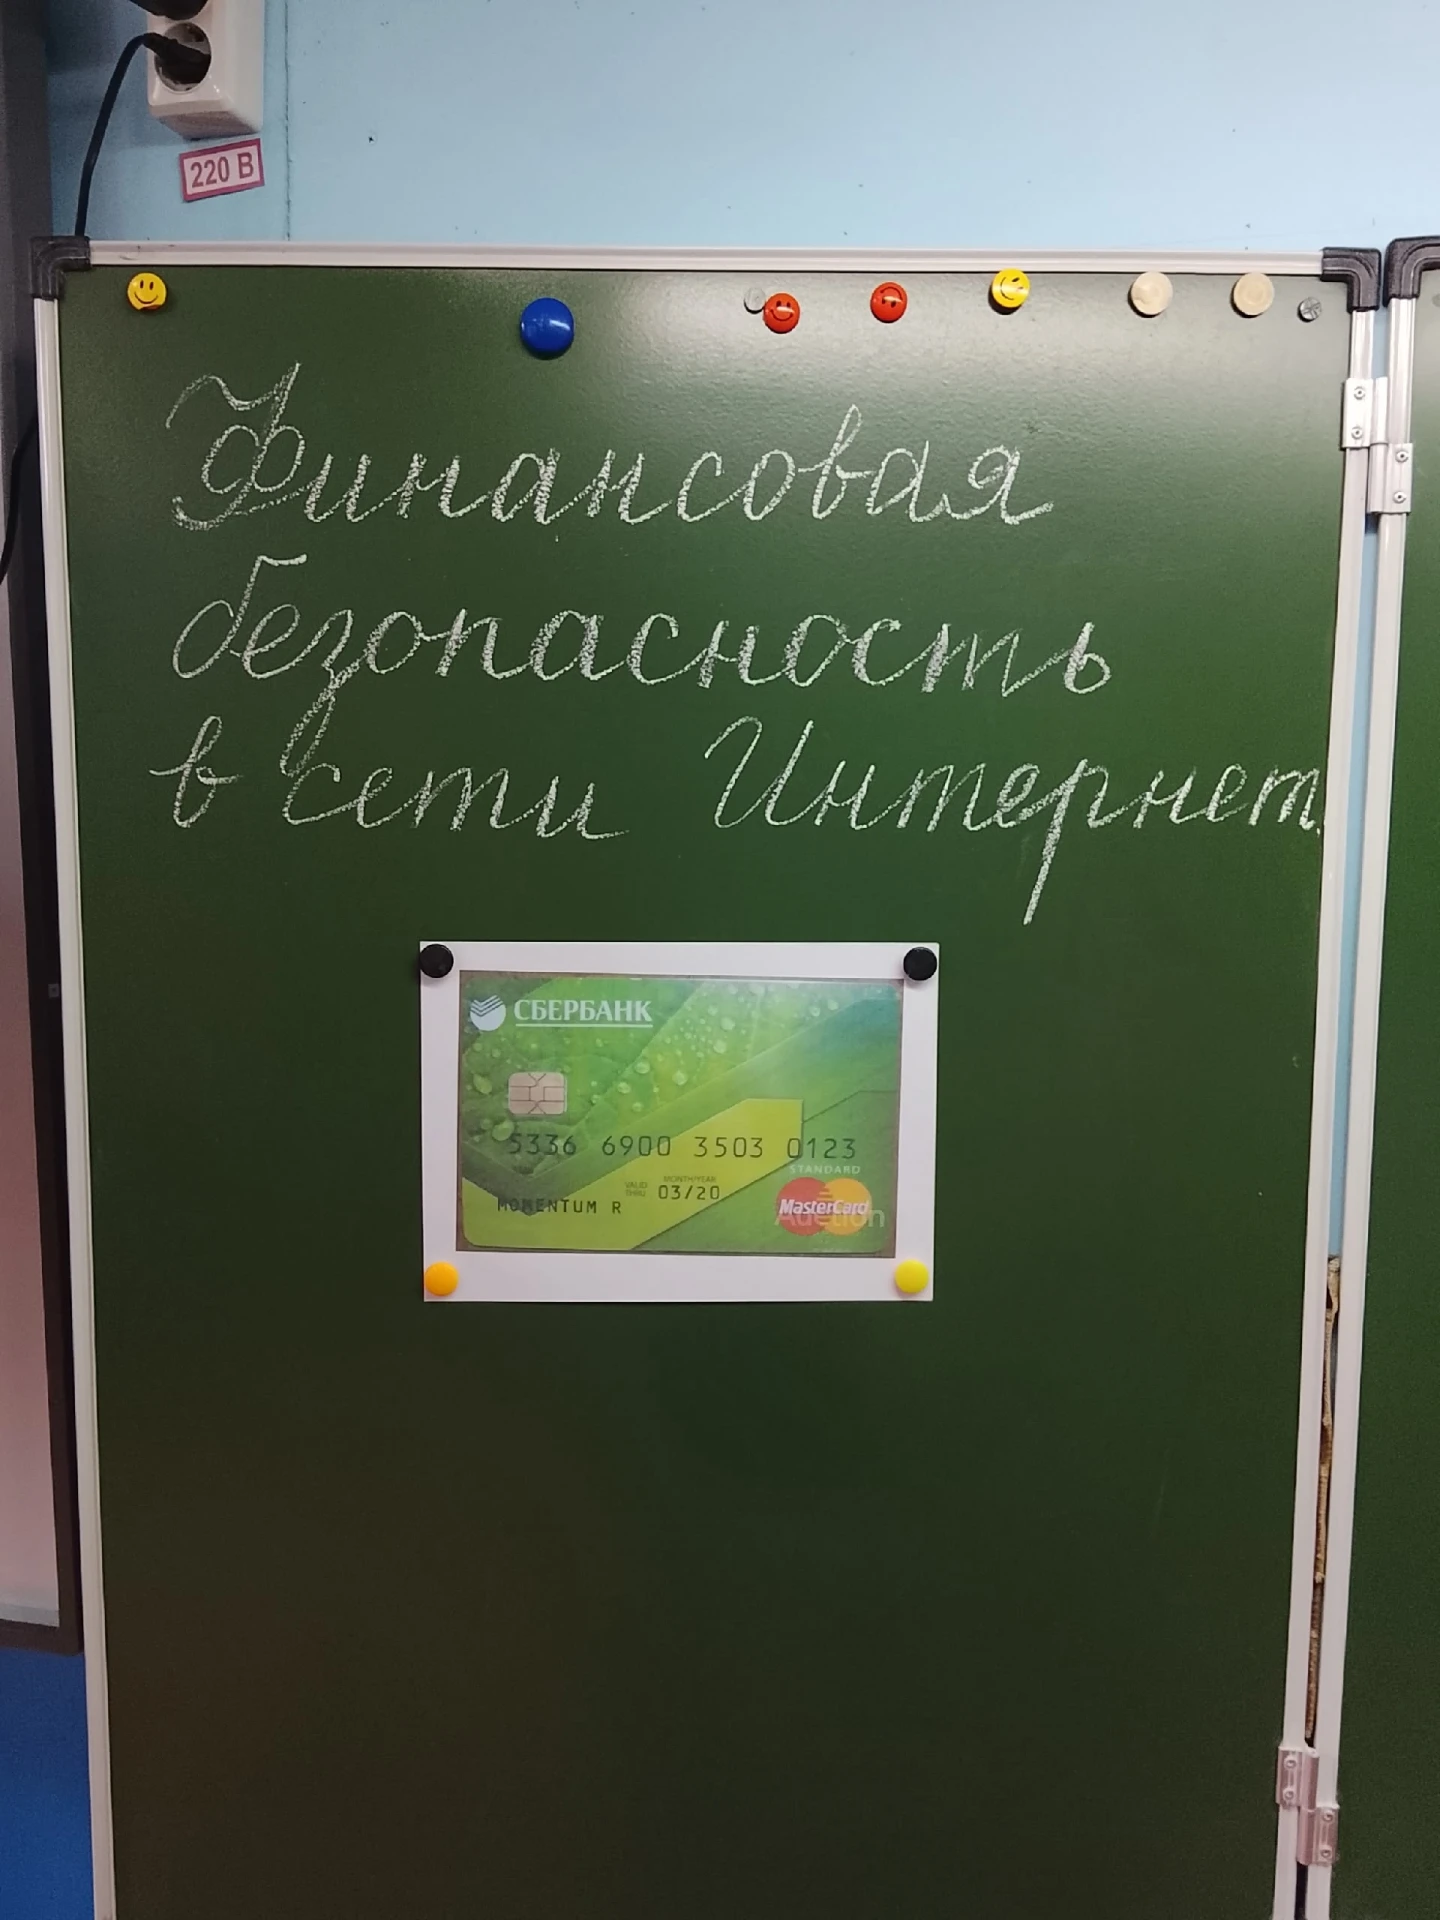 220 В
Финансовая
безопасность
в сети Интернет
СБЕРБАНК
5336 6900 3503 0123
STANDARD
MONTH/YEAR
VALID THRU 03/20
MOMENTUM R
MasterCard
Auction